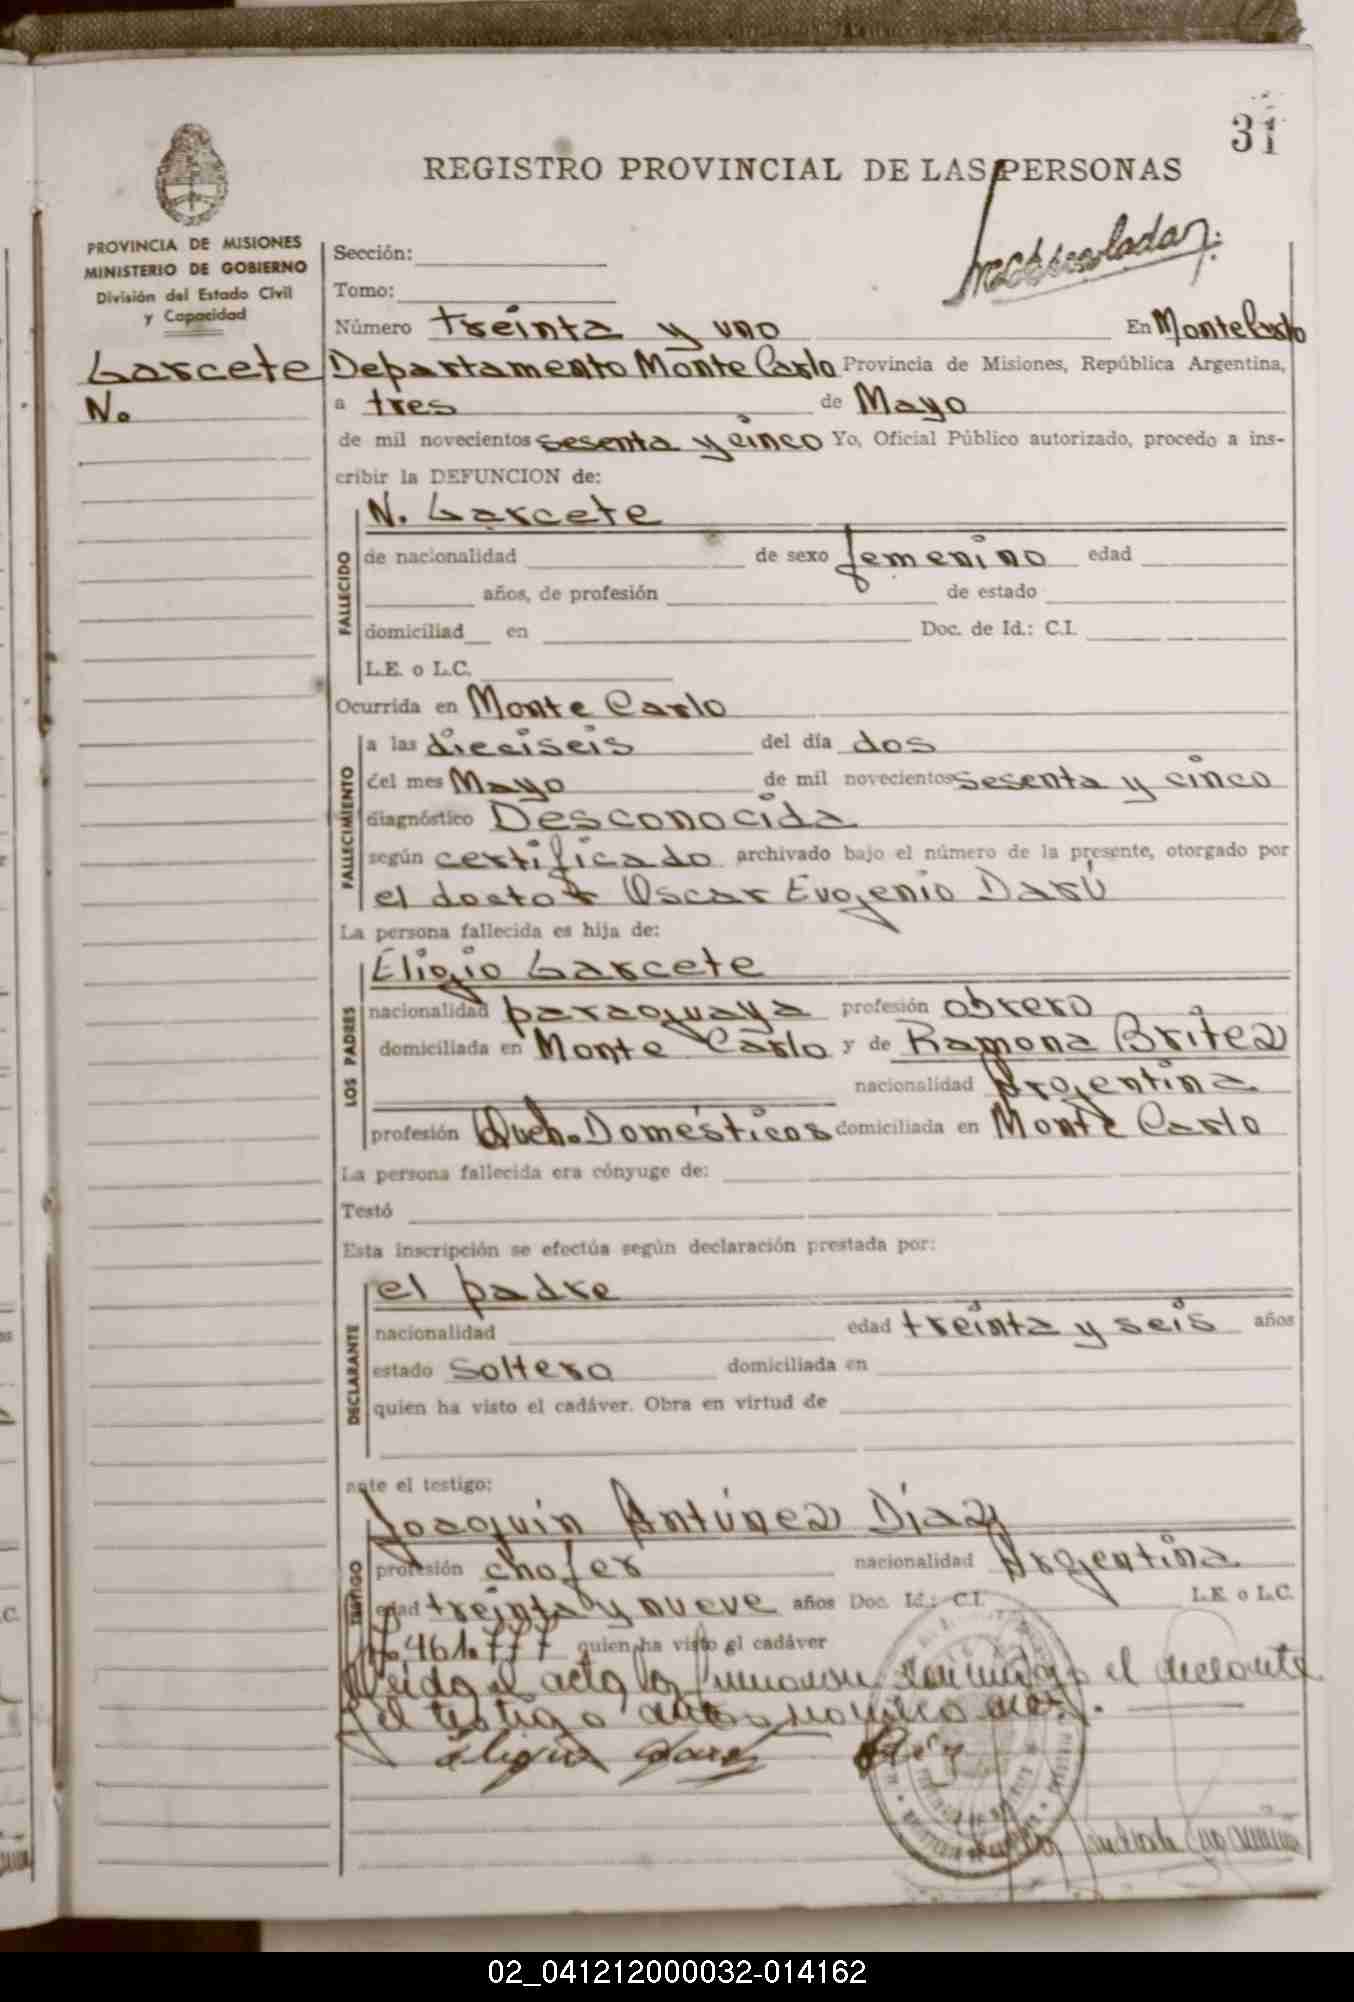 31
REGISTRO PROVINCIAL DE LAS PERSONAS
PROVINCIA DE MISIONES
MINISTERIO DE GOBIERNO
División del Estado Civil
y Capacidad
Larcete
N.
Sección:
Tomo:
Número treinta y uno En Monte Carlo
Departamento Monte Carlo Provincia de Misiones, República Argentina,
a tres de Mayo
de mil novecientos sesenta y cinco Yo, Oficial Público autorizado, procedo a ins-
cribir la DEFUNCION de:
N. Larcete
FALLECIDO
de nacionalidad de sexo femenino edad
años, de profesión de estado
domiciliad en Doc. de Id.: C.I.
L.E. o L.C.
Ocurrida en Monte Carlo
FALLECIMIENTO
a las dieciseis del día dos
del mes Mayo de mil novecientos sesenta y cinco
diagnóstico Desconocida
según certificado archivado bajo el número de la presente, otorgado por
el doctor Oscar Eugenio Darú
La persona fallecida es hija de:
LOS PADRES
Eligio Larcete
nacionalidad paraguaya profesión obrero
domiciliada en Monte Carlo y de Ramona Britez
nacionalidad Argentina
profesión Queh. Domésticos domiciliada en Monte Carlo
La persona fallecida era cónyuge de:
Testó
Esta inscripción se efectúa según declaración prestada por:
DECLARANTE
el padre
nacionalidad edad treinta y seis años
estado soltero domiciliada en
quien ha visto el cadáver. Obra en virtud de
ante el testigo:
TESTIGO
Joaquín Antúnez Díaz
profesión chofer nacionalidad Argentina
edad treinta y nueve años Doc. Id.: C.I. L.E. o L.C.
461.777 quien ha visto el cadáver
Leida el acta la firmaron conmigo el declarante
y el testigo antes nombrados.
02_041212000032-014162